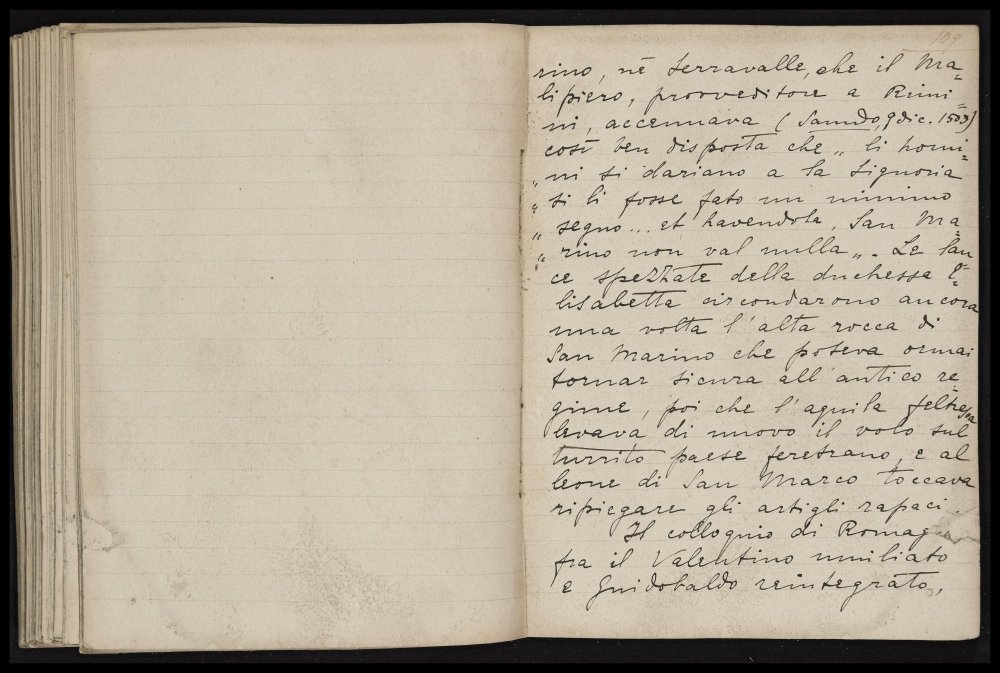 109
rino, nè Serravalle, che il Ma=
lipiero, provveditore a Rimi=
ni, accennava (Sanudo, 9 dic. 1503)
così ben disposta che „ li homi=
„ ni si dariano a la Signoria
„ si li fosse fato un minimo
„ segno... et havendola, San Ma=
„ rino non val nulla „. Le lan
ce spezzate della duchessa E=
lisabetta circondarono ancora
una volta l'alta rocca di
San Marino che poteva ormai
tornar sicura all'antico re=
gime, poi che l'aquila feltresca
levava di nuovo il volo sul
turrito paese feretrano, e al
leone di San Marco toccava
ripiegare gli artigli rapaci.
Il colloquio di Roma
fra il Valentino umiliato
e Guidobaldo reintegrato,